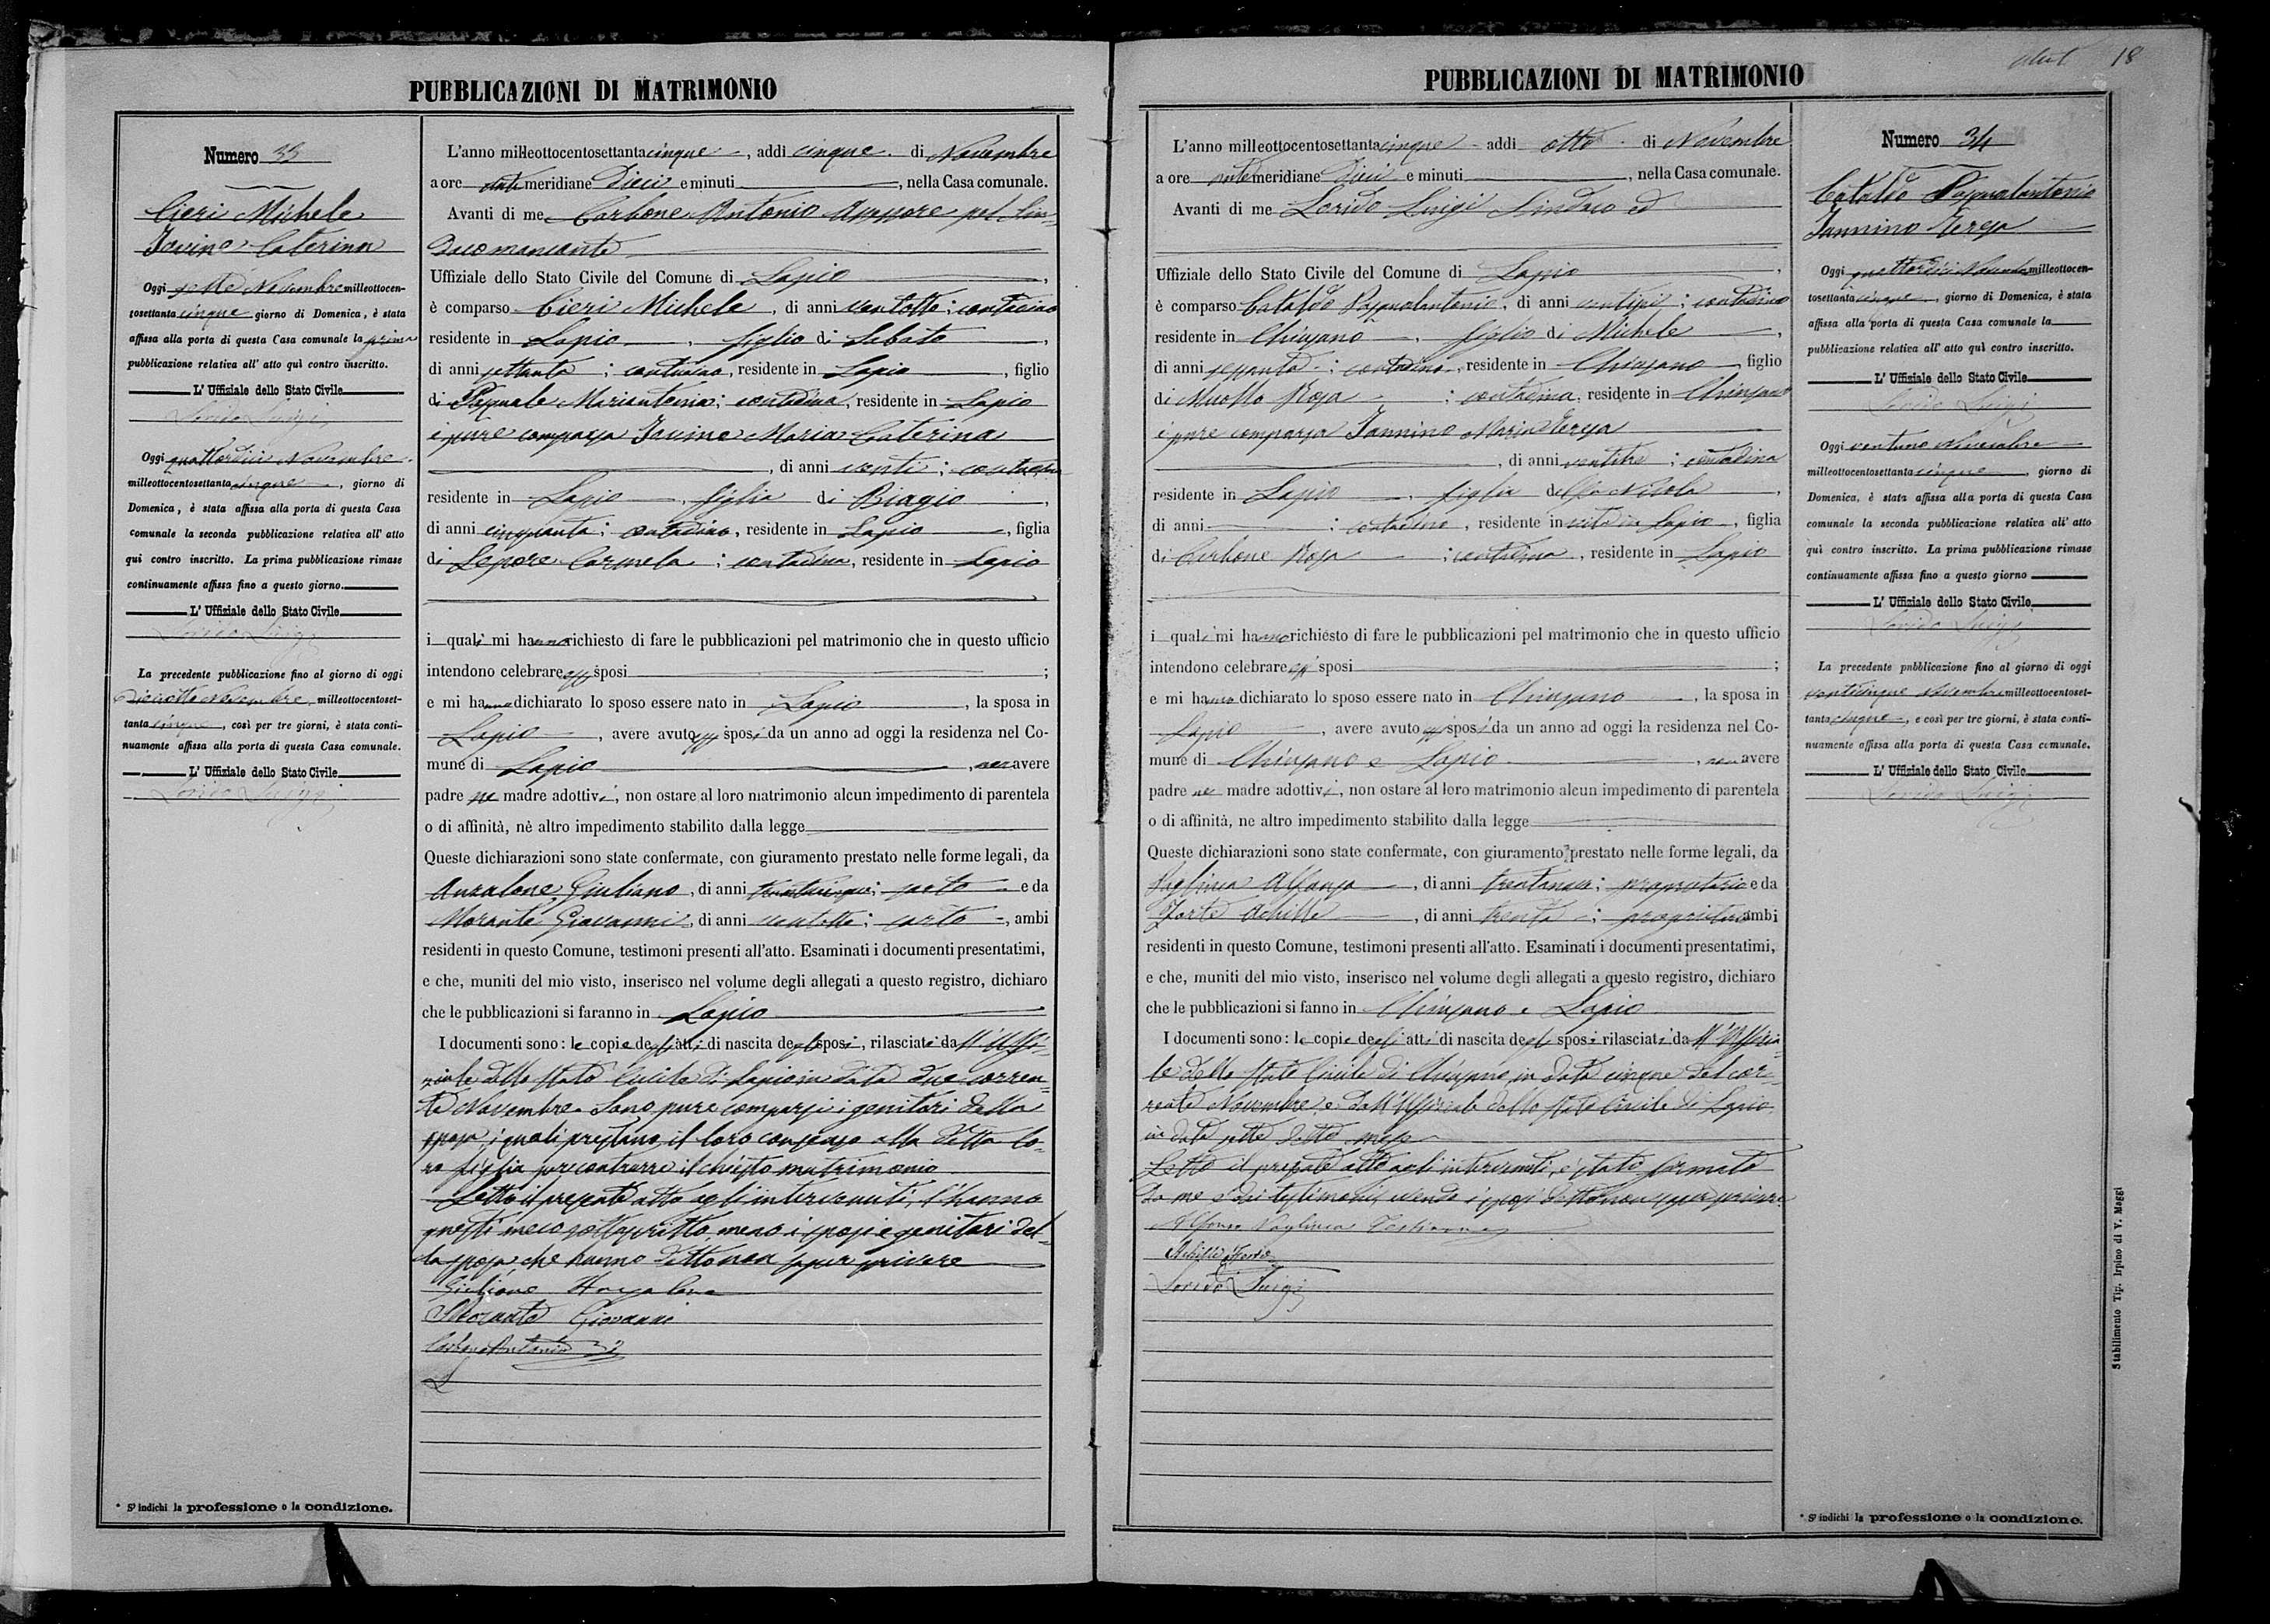 PUBBLICAZIONI DI MATRIMONIO
Numero 33
Cieri Michele
Iovine Caterina
Oggi sette Novembre milleottocen-
tosettanta cinque giorno di Domenica, è stata
affissa alla porta di questa Casa comunale la prima
pubblicazione relativa all' atto quì contro inscritto.
L' Uffiziale dello Stato Civile
Lorido Luigi
Oggi quattordici Novembre
milleottocentosettanta cinque, giorno di
Domenica, è stata affissa alla porta di questa Casa
comunale la seconda pubblicazione relativa all' atto
quì contro inscritto. La prima pubblicazione rimase
continuamente affissa fino a questo giorno.
L' Uffiziale dello Stato Civile
Lorido Luigi
La precedente pubblicazione fino al giorno di oggi
Dieciotto Novembre milleottocentoset-
tanta cinque, così per tre giorni, è stata conti-
nuamente affissa alla porta di questa Casa comunale.
L' Uffiziale dello Stato Civile
Lorido Luigi
* S' indichi la professione o la condizione.
L'anno milleottocentosettanta cinque, addì cinque di Novembre
a ore anti meridiane Dieci e minuti, nella Casa comunale.
Avanti di me Carbone Antonio Assessore pel Sin-
daco mancante
Uffiziale dello Stato Civile del Comune di Lapio,
è comparso Cieri Michele, di anni ventotto; contadino
residente in Lapio, figlio di Sabato,
di anni settanta; contadino, residente in Lapio, figlio
di Pasquale Mariantonia; contadina, residente in Lapio
è pure comparsa Iovine Maria Caterina
, di anni venti; contadina
residente in Lapio, figlia di Biagio,
di anni cinquanta; contadino, residente in Lapio, figlia
di Lepore Carmela; contadina, residente in Lapio
i quali mi hanno richiesto di fare le pubblicazioni pel matrimonio che in questo ufficio
intendono celebrare essi sposi;
e mi hanno dichiarato lo sposo essere nato in Lapio, la sposa in
Lapio, avere avuto essi sposi da un anno ad oggi la residenza nel Co-
mune di Lapio, non avere
padre ne madre adottivi, non ostare al loro matrimonio alcun impedimento di parentela
o di affinità, nè altro impedimento stabilito dalla legge
Queste dichiarazioni sono state confermate, con giuramento prestato nelle forme legali, da
Anzalone Giuliano, di anni trentacinque; sarto e da
Morante Giovanni, di anni ventotto; sarto, ambi
residenti in questo Comune, testimoni presenti all'atto. Esaminati i documenti presentatimi,
e che, muniti del mio visto, inserisco nel volume degli allegati a questo registro, dichiaro
che le pubblicazioni si faranno in Lapio
I documenti sono: le copie degli atti di nascita degli sposi, rilasciate da ll'Uffi-
ziale dello stato Civile di Lapio in data due corren-
te Novembre. Sono pure comparsi i genitori della
sposa, i quali prestano il loro consenso alla detta lo-
ro figlia per contrarre il chiesto matrimonio
Letto il presente atto agli intervenuti, l'hanno
questi meco sottoscritto, meno i sposi e genitori del-
la sposa che hanno detto non saper scrivere
Giuliano Anzalone
Morante Giovanni
Carbone Antonio
PUBBLICAZIONI DI MATRIMONIO
18
L'anno milleottocentosettanta cinque addì otto di Novembre
a ore anti meridiane Dieci e minuti, nella Casa comunale.
Avanti di me Lorido Luigi Sindaco ed
Uffiziale dello Stato Civile del Comune di Lapio,
è comparso Cataldo Pasqualantonio, di anni ventisei; contadino
residente in Chiusano, figlio di Michele,
di anni sessanta; contadino, residente in Chiusano, figlio
di Musto Rosa; contadina, residente in Chiusano
è pure comparsa Iannino Maria Teresa
, di anni ventitre; contadina
residente in Lapio, figlia del fu Nicola,
di anni; contadino, residente in vita in Lapio, figlia
di Carbone Rosa; contadina, residente in Lapio
i quali mi hanno richiesto di fare le pubblicazioni pel matrimonio che in questo ufficio
intendono celebrare essi sposi;
e mi hanno dichiarato lo sposo essere nato in Chiusano, la sposa in
Lapio, avere avuto essi sposi da un anno ad oggi la residenza nel Co-
mune di Chiusano e Lapio, non avere
padre ne madre adottivi, non ostare al loro matrimonio alcun impedimento di parentela
o di affinità, ne altro impedimento stabilito dalla legge
Queste dichiarazioni sono state confermate, con giuramento prestato nelle forme legali, da
Vaglinca Alfonso, di anni trentanove; proprietario e da
Forte Achille, di anni trenta; proprietario ambi
residenti in questo Comune, testimoni presenti all'atto. Esaminati i documenti presentatimi,
e che, muniti del mio visto, inserisco nel volume degli allegati a questo registro, dichiaro
che le pubblicazioni si fanno in Chiusano e Lapio
I documenti sono: le copie degli atti di nascita degli sposi rilasciati da ll'Uffizia-
le dello Stato Civile di Chiusano in data cinque del cor-
rente Novembre, e dall'Uffiziale dello stato Civile di Lapio
in data sette detto mese
Letto il presente atto agli intervenuti, è stato firmato
da me e dai testimoni, avendo i sposi detto non saper scrivere
Alfonso Vaglinca Testimone
Achille Forte
Lorido Luigi
Numero 34
Cataldo Pasqualantonio
Iannino Teresa
Oggi quattordici Novembre milleottocen-
tosettanta cinque, giorno di Domenica, è stata
affissa alla porta di questa Casa comunale la
pubblicazione relativa all' atto quì contro inscritto.
L' Uffiziale dello Stato Civile
Lorido Luigi
Oggi ventuno Novembre
milleottocentosettanta cinque, giorno di
Domenica, è stata affissa alla porta di questa Casa
comunale la seconda pubblicazione relativa all' atto
quì contro inscritto. La prima pubblicazione rimase
continuamente affissa fino a questo giorno
L' Uffiziale dello Stato Civile
Lorido Luigi
La precedente pubblicazione fino al giorno di oggi
venticinque Novembre milleottocentoset-
tanta cinque, e così per tre giorni, è stata conti-
nuamente affissa alla porta di questa Casa comunale.
L' Uffiziale dello Stato Civile
Lorido Luigi
* S' indichi la professione o la condizione.
Stabilimento Tip. Irpino di V. Maggi